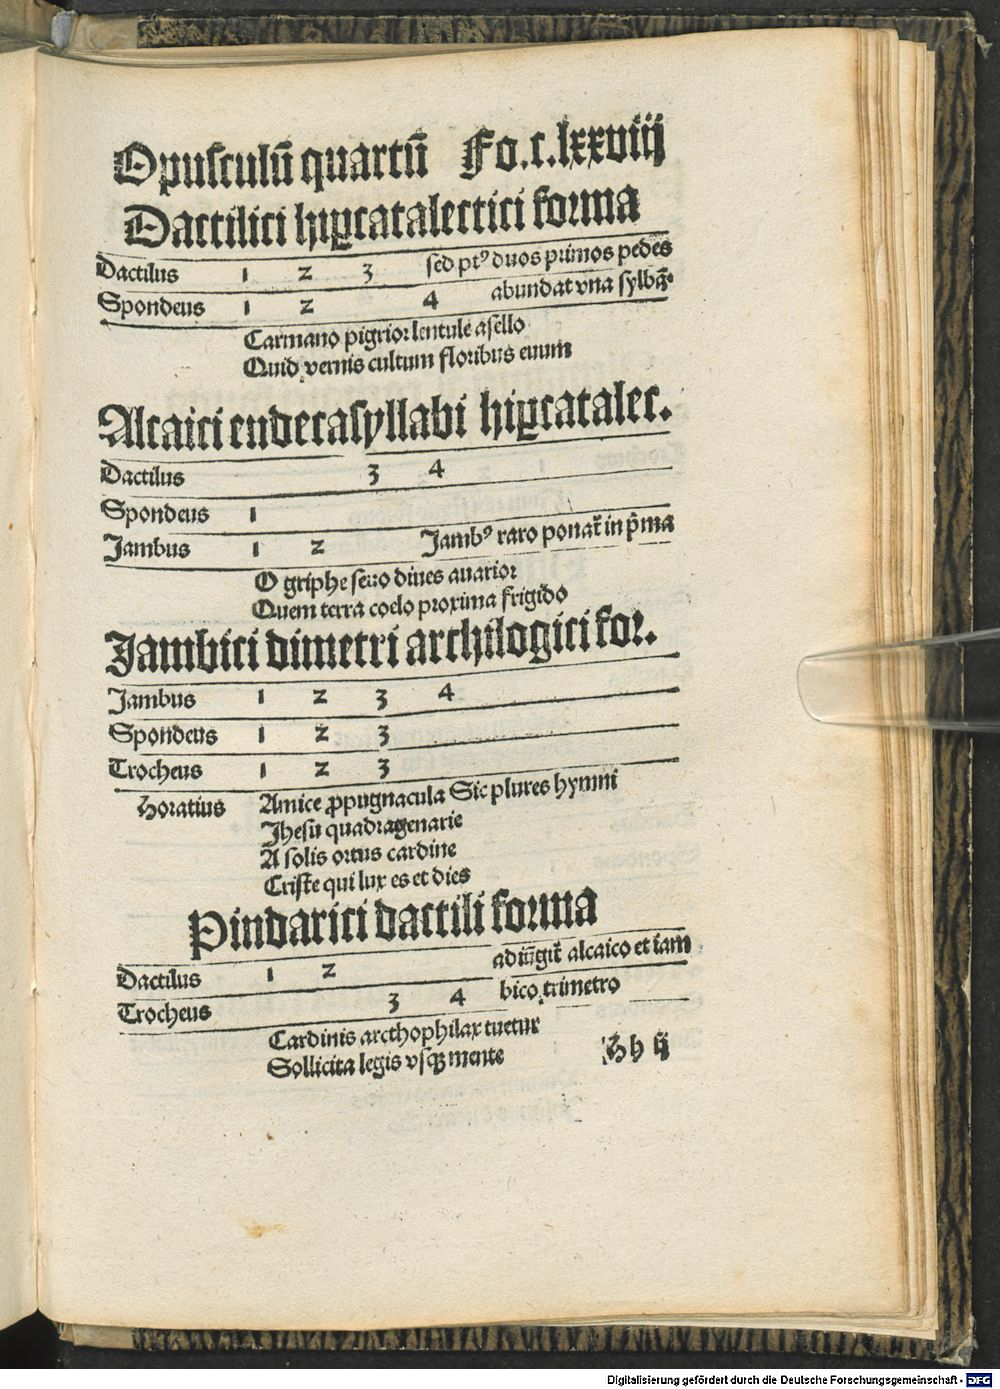 Opusculū quartū Fo.c.lxxviij
Dactilici hiꝑcatalectici forma
Dactilus 1 2 3 sed ptꝰ duos primos pedes
Spondeus 1 2 4 abundat vna sylbā
Carmano pigrior lentule asello
Quid vernis cultum floribus euum
Alcaici endecasyllabi hiꝑcatalec.
Dactilus 3 4
Spondeus 1
Jambus 1 2 Jambꝰ raro ponat᷑ in p̄ma
O griphe seuo diues auarior
Quem terra coelo proxima frigido
Jambici dimetri archilogici for.
Jambus 1 2 3 4
Spondeus 1 2 3
Trocheus 1 2 3
Horatius Amice ꝓpugnacula Sic plures hymni
Jhesu quadragenarie
A solis ortus cardine
Criste qui lux es et dies
Pindarici dactili forma
Dactilus 1 2 adiūgit᷑ alcaico et iam
Trocheus 3 4 bico trimetro
Cardinis arcthophilax tuetur
Sollicita legis vsqꝫ mente Hh ij
Digitalisierung gefördert durch die Deutsche Forschungsgemeinschaft - DFG